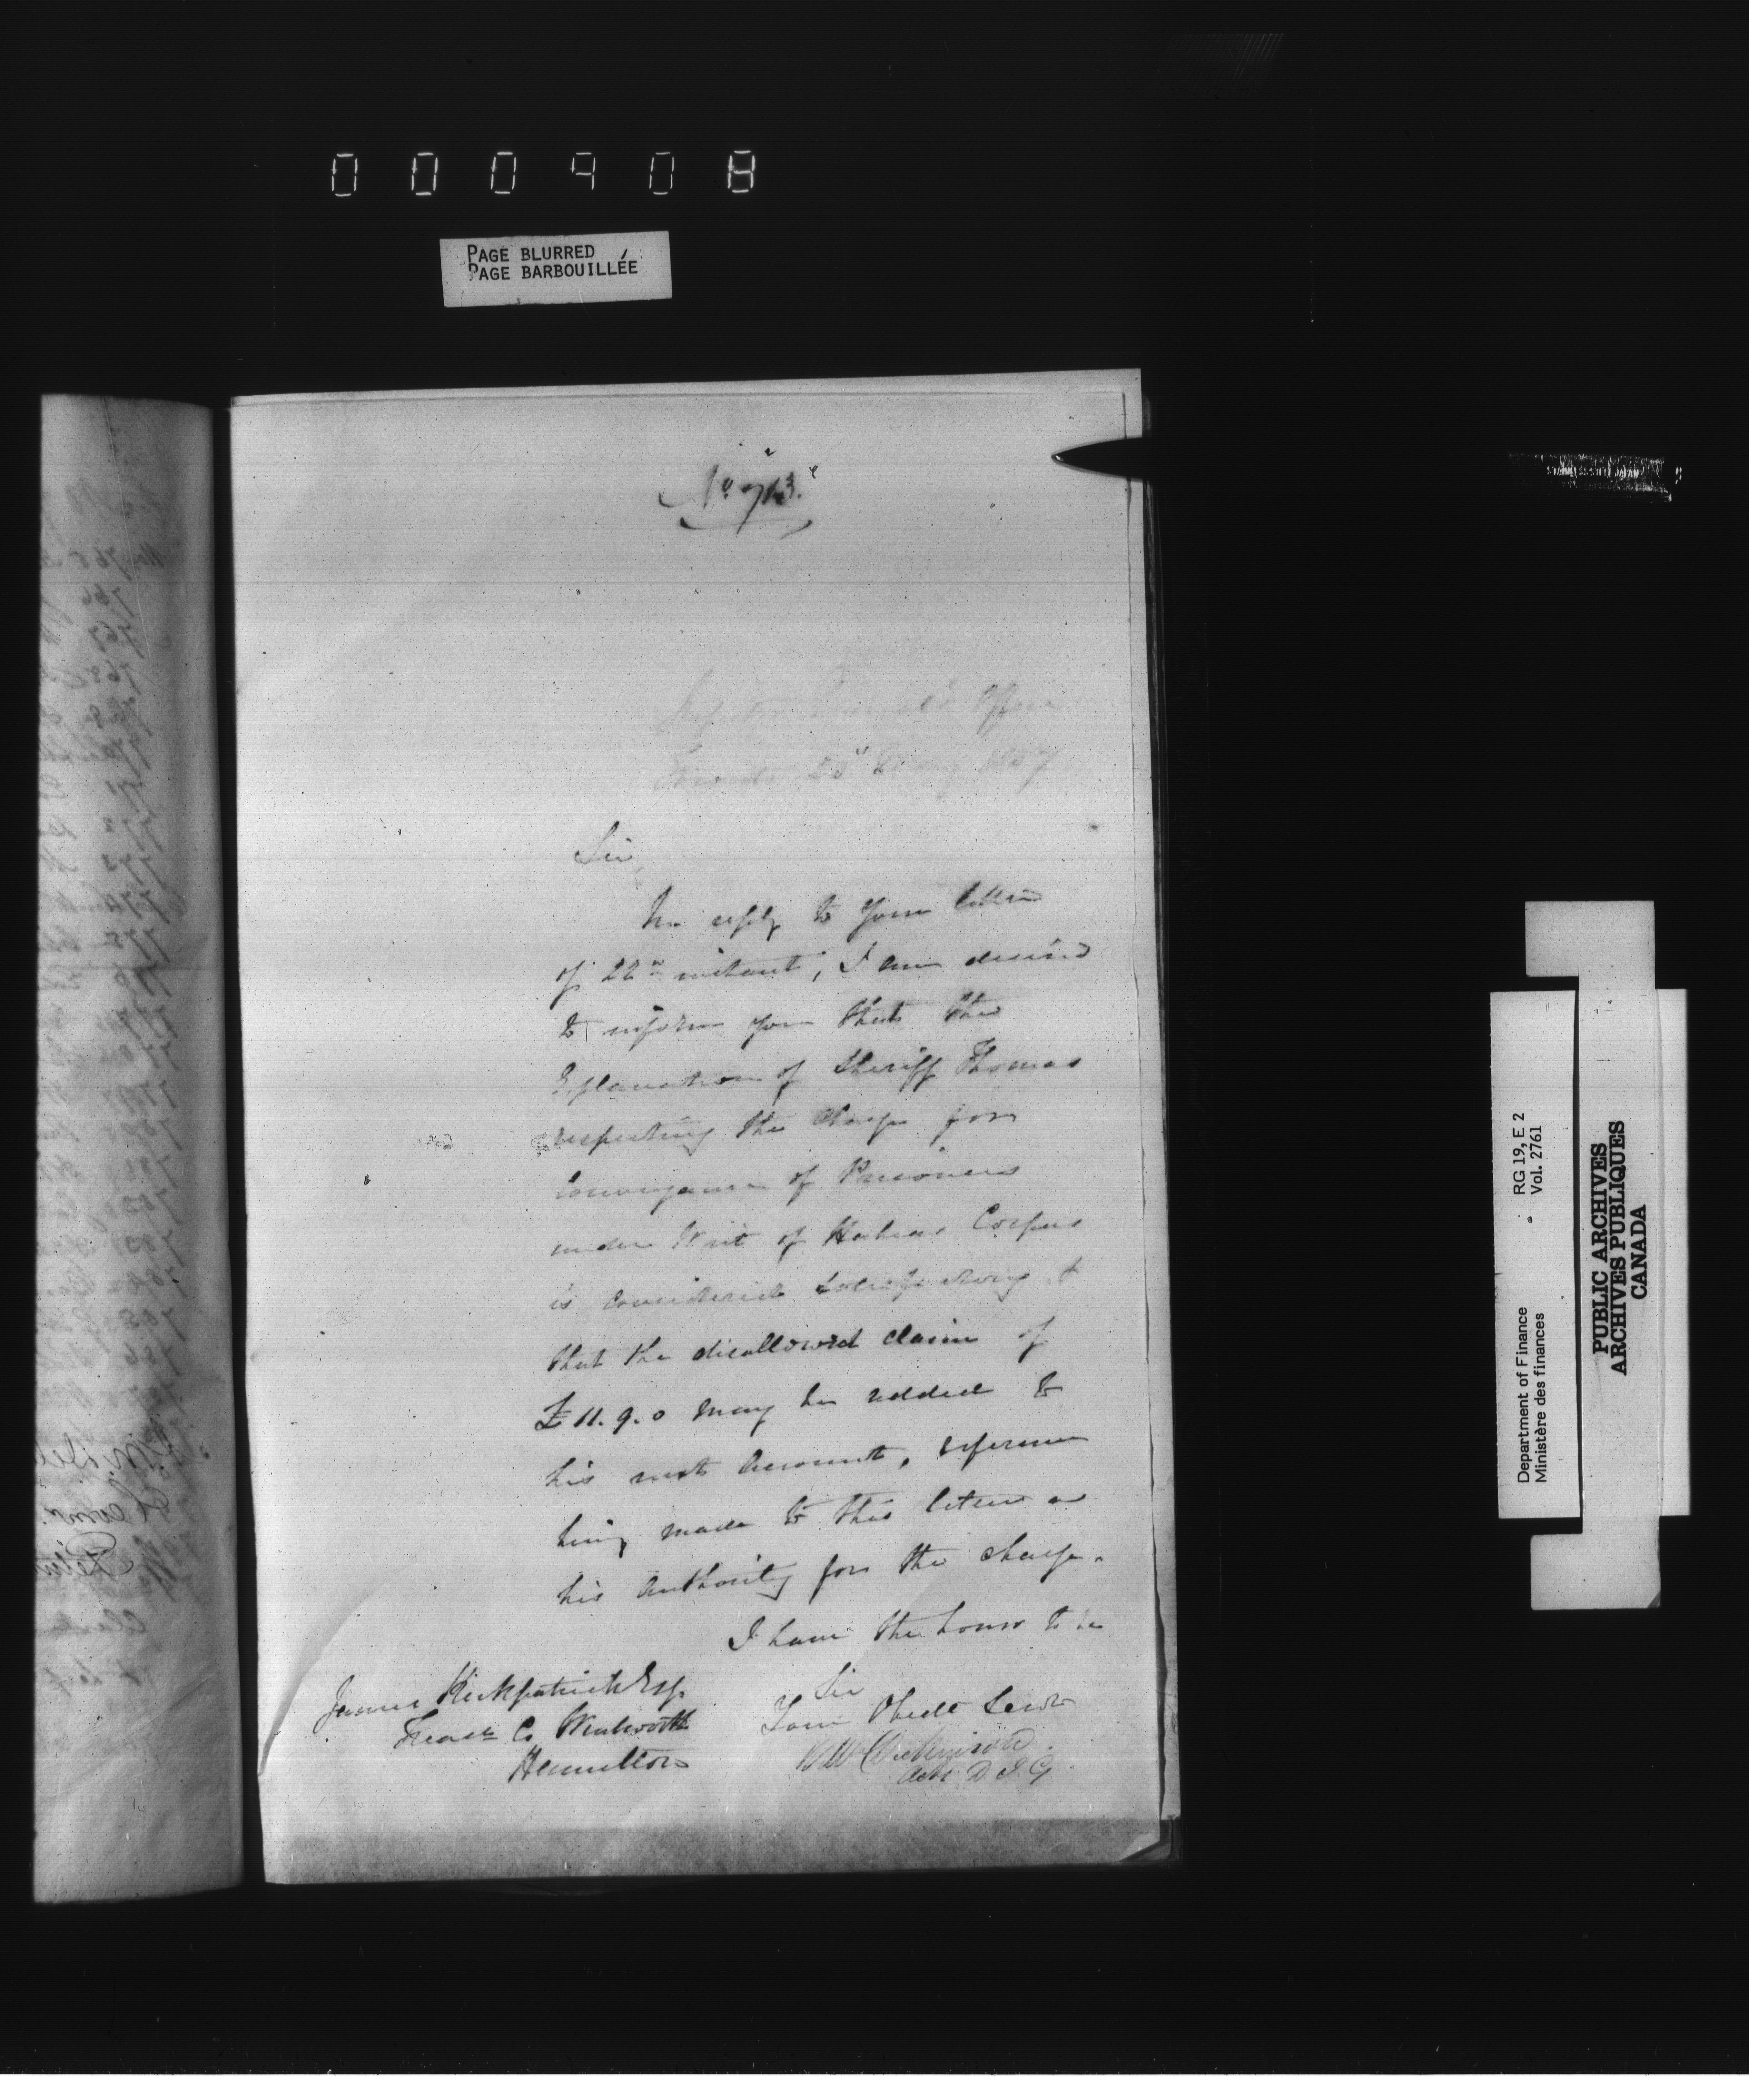 000908
PAGE BLURRED
PAGE BARBOUILLÉE
No 713.
Inspector General's Office
Toronto 23d May 1857
Sir,
In reply to your letter
of 22nd instant, I am desired
to inform you that the
Explanation of Sheriff Thomas
respecting the charge for
Conveyance of Prisoners
under Writ of Habeas Corpus
is considered satisfactory &
that the disallowed claim of
£11.9.0 may be added to
his next Account, reference
being made to this letter as
his Authority for the charge.
I have the honor to be
Sir
Your Obedt Servt
Actg D I G
James Kirkpatrick Esq.
Treasr Co Wentworth
Hamilton
STAINLESS STEEL JAPAN
RG 19, E 2
Vol. 2761
Department of Finance
Ministère des finances
PUBLIC ARCHIVES
ARCHIVES PUBLIQUES
CANADA